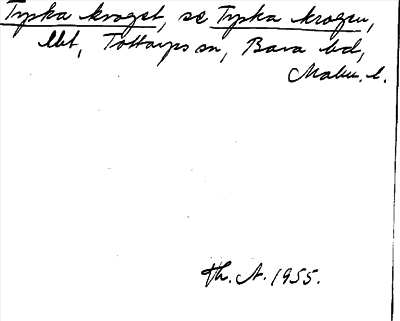 Tyska kroget, se Tyska krogen,
llt, Tottarps sn, Bara hd,
Malm. l.
Th. A. 1955.